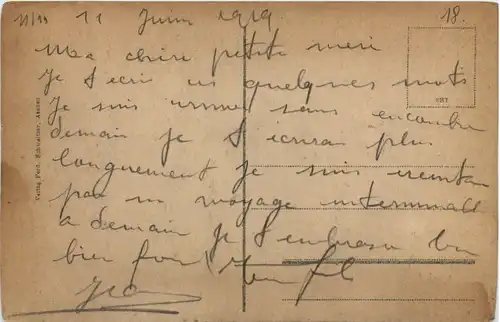 11 Juin 1919
18.
Ma chère petite mere
Je t'ecris ces quelques mots
Je suis arrivé sans encombre
demain je t'ecrirai plus
longuement je suis ereinté
par un voyage interminable
a demain je t'embrasse
bien fort
Jean
Verlag Ferd. Schweitzer, Aachen